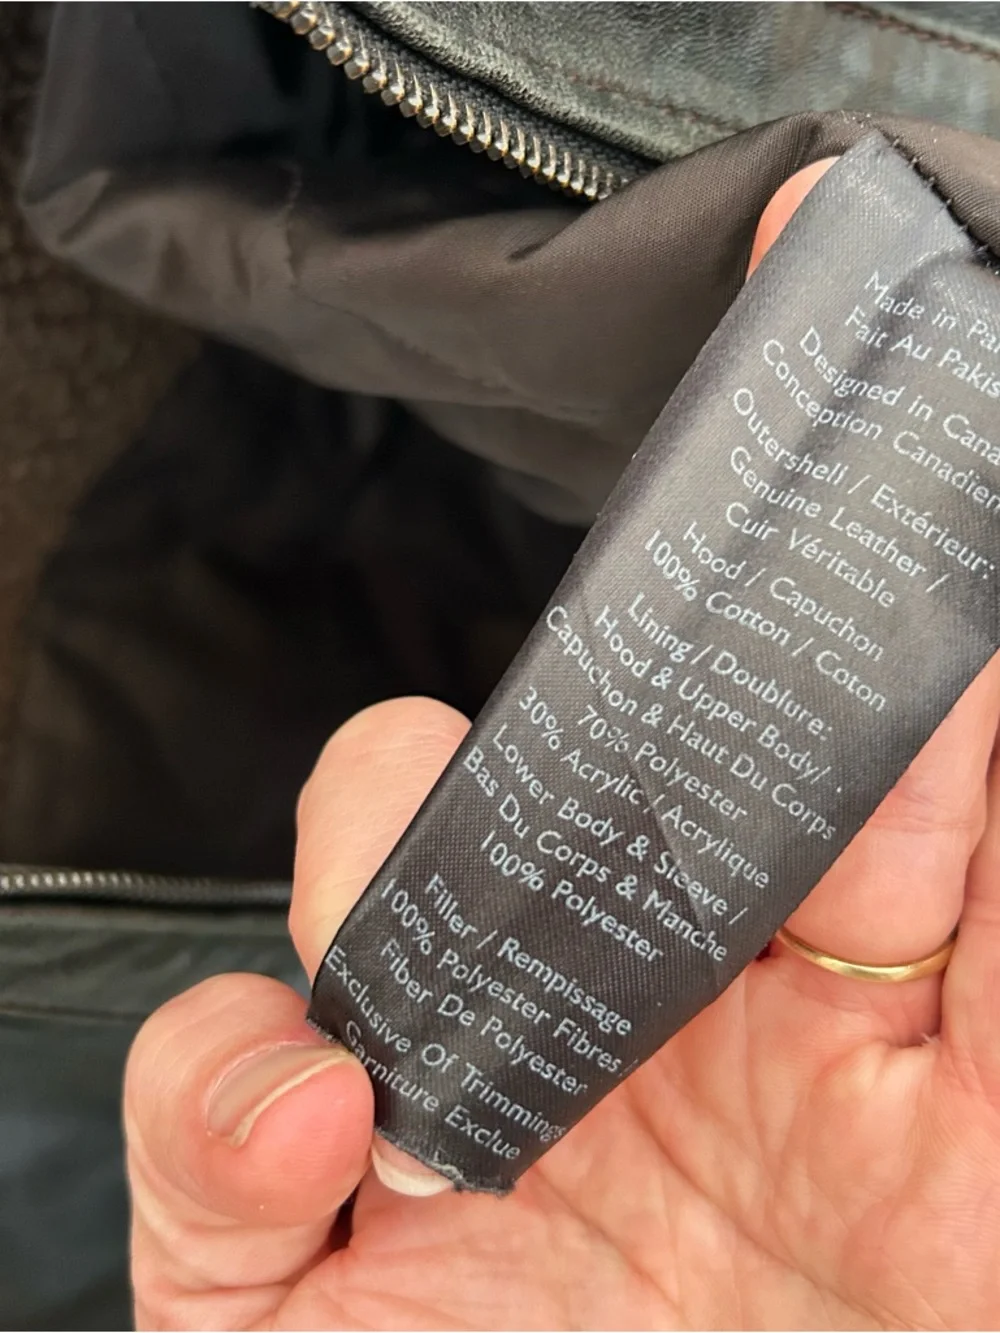 Made in Pa
Fait Au Pakis
Designed in Cana
Conception Canadien
Outershell / Extérieur:
Genuine Leather /
Cuir Véritable
Hood / Capuchon
100% Cotton / Coton
Lining / Doublure:
Hood & Upper Body/
Capuchon & Haut Du Corps
70% Polyester
30% Acrylic / Acrylique
Lower Body & Sleeve /
Bas Du Corps & Manche
100% Polyester
Filler / Rempissage
100% Polyester Fibres /
Fiber De Polyester
Exclusive Of Trimmings
Garniture Exclue